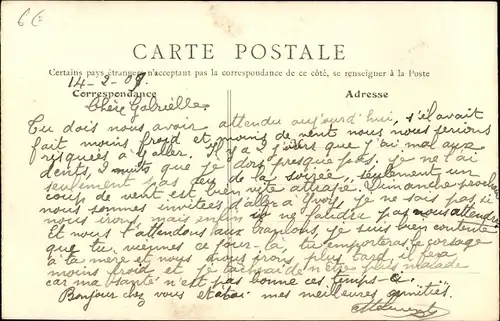 6€
CARTE POSTALE
Certains pays étrangers n'acceptant pas la correspondance de ce côté, se renseigner à la Poste
14-2-09
Correspondance Adresse
Chère Gabrielle
Tu dois nous avoir attendu aujourd'hui, s'il avait
fait moins froid et moins de vent nous nous serions
risquées à y aller. Il y a 2 jours que j'ai mal aux
dents, 2 nuits que je dors presque pas. Je ne l'ai
seulement pas de la soirée, seulement un
coup de vent est bien vite attrapé. Dimanche prochain
nous sommes invitées d'aller à je ne sais pas si
nous irons, mais enfin il ne faudra pas nous attendre
Et nous t'attendons aux, je suis bien contente
que tu viennes ce jour-là, tu emporteras le corsage
à ta mère et nous nous irons plus tard, il fera
moins froid et je tâcherai de n'être plus malade
car ma santé n'est pas bonne ces temps-ci.
Bonjour chez vous et à toi mes meilleures amitiés.